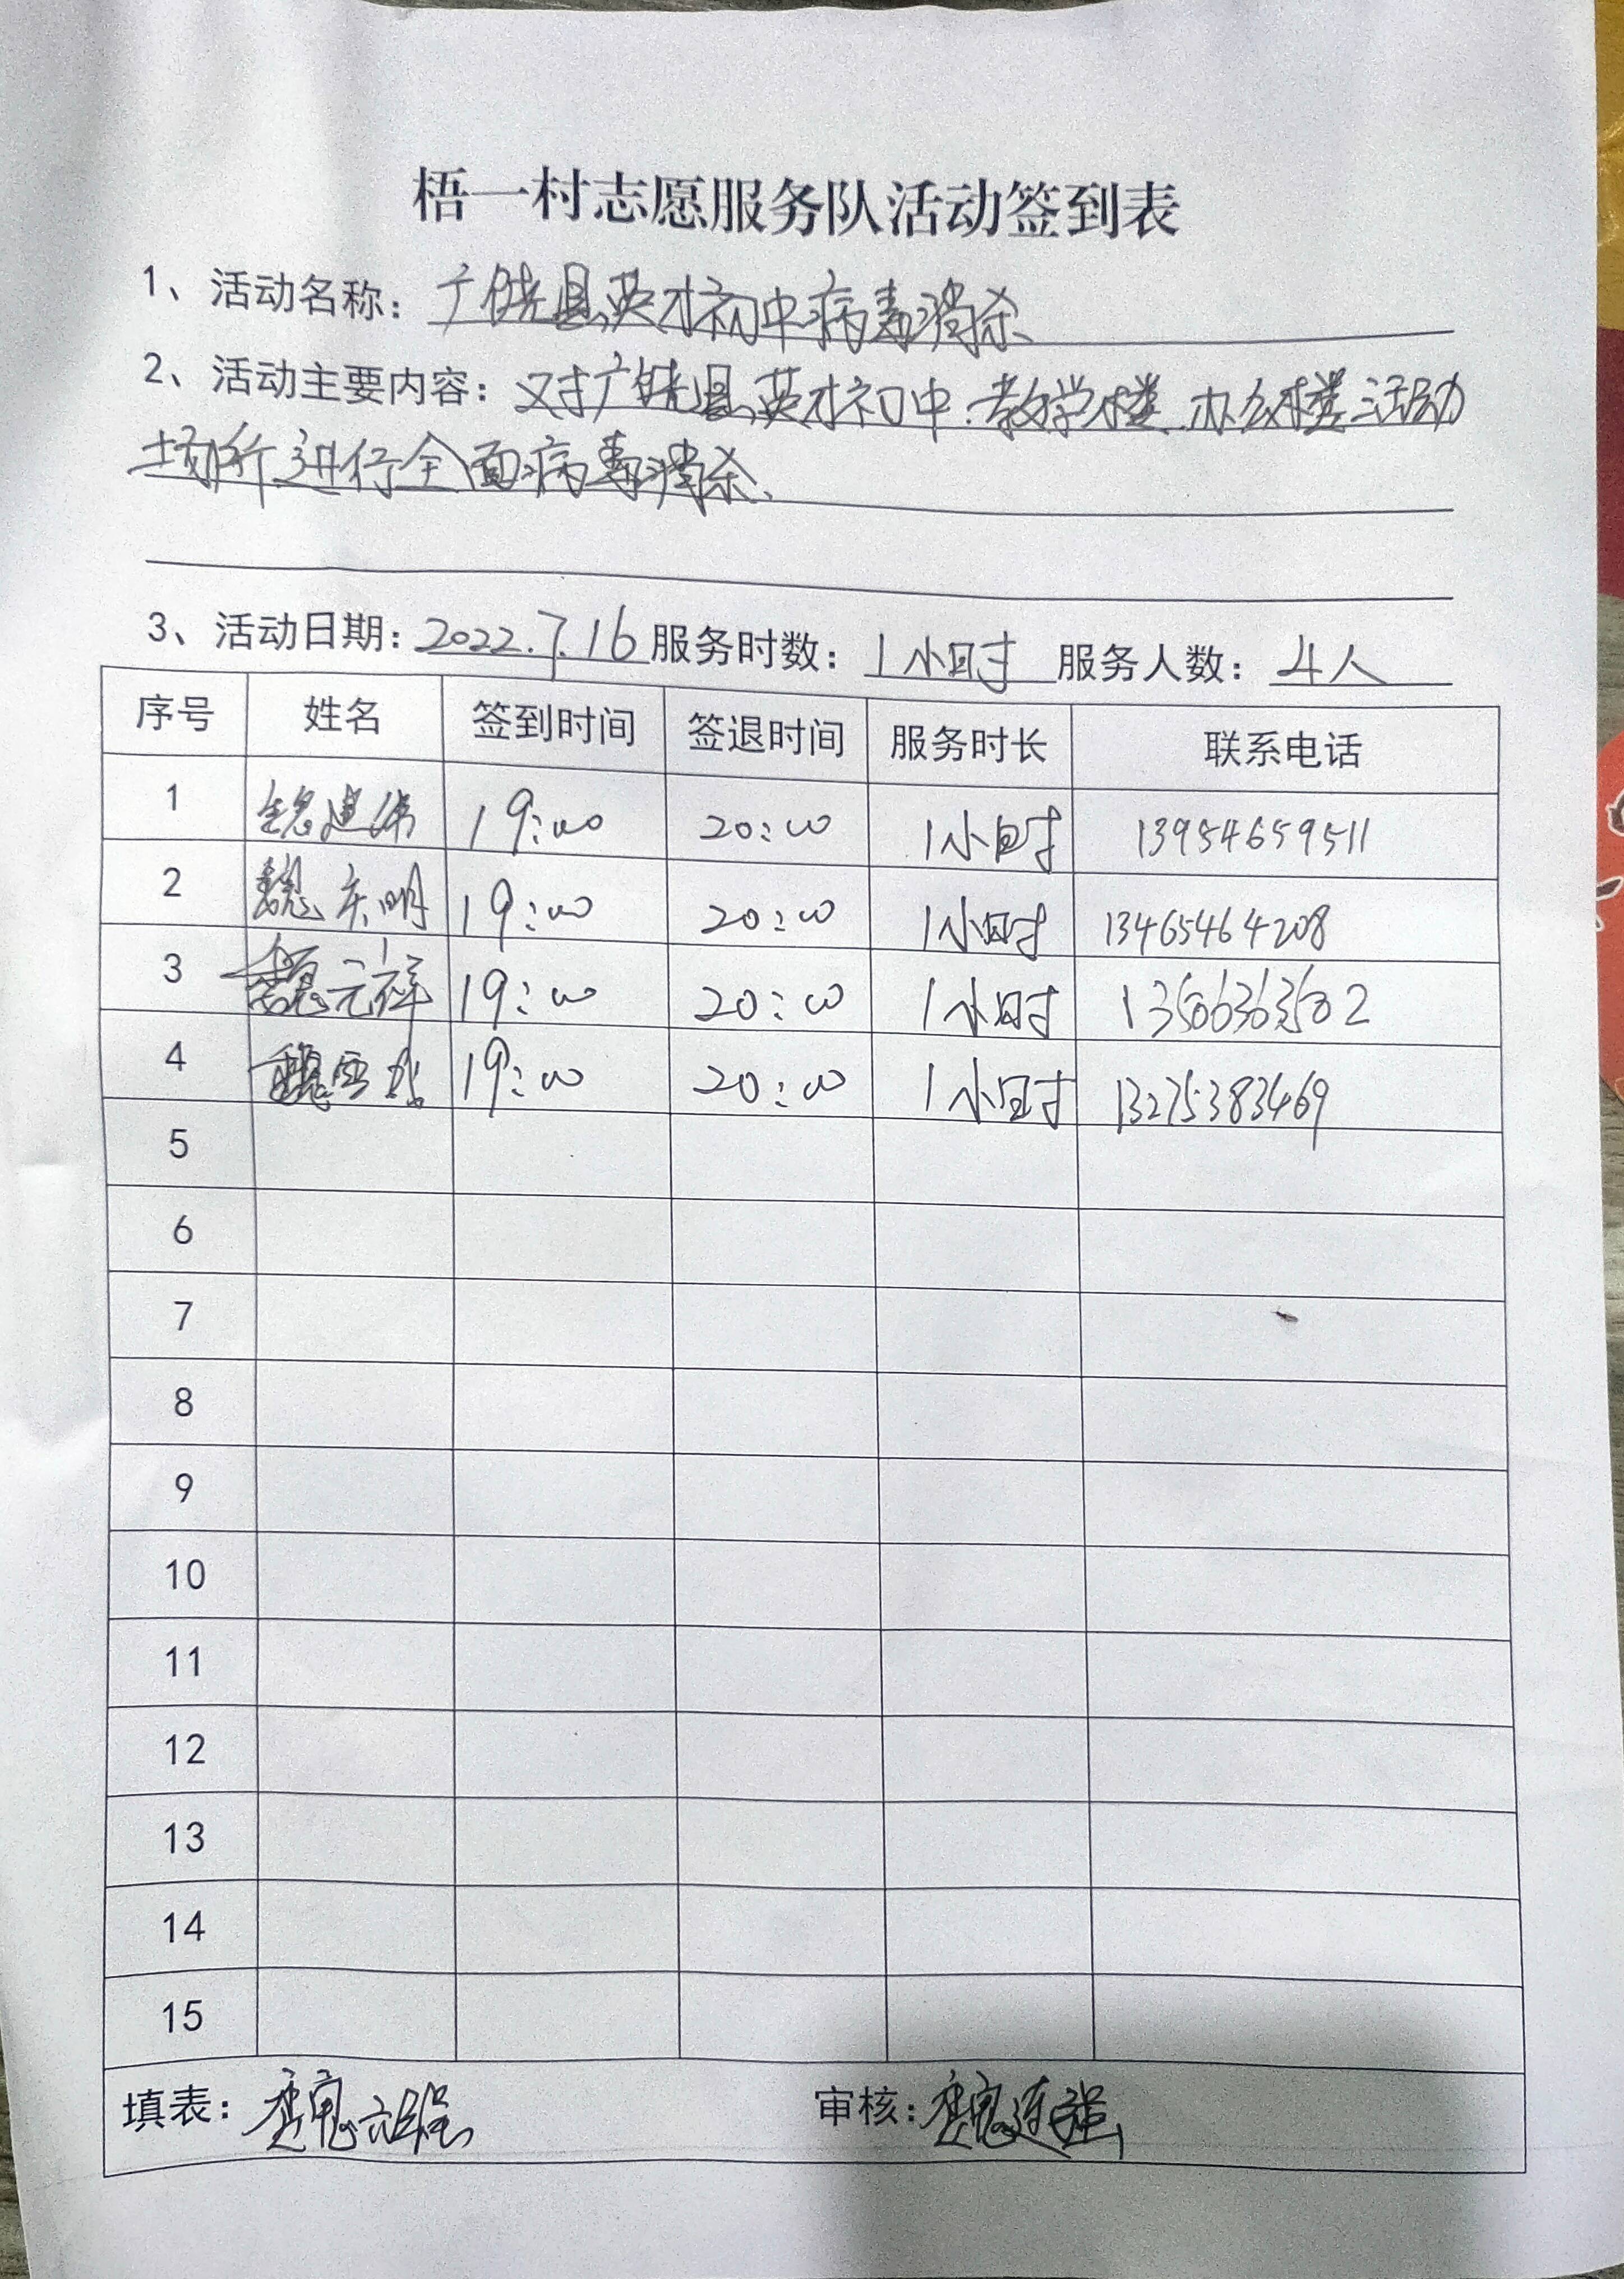 梧一村志愿服务队活动签到表
1、活动名称：广饶县英才初中病毒消杀
2、活动主要内容：对广饶县英才初中教学楼、办公楼活动
场所进行全面病毒消杀、
3、活动日期：2022.7.16 服务时数：1小时 服务人数：4人
序号 姓名 签到时间 签退时间 服务时长 联系电话
1 魏建伟 19:00 20:00 1小时 13954659511
2 魏庆明 19:00 20:00 1小时 13465464208
3 魏元祥 19:00 20:00 1小时 13506363502
4 魏 19:00 20:00 1小时 13275383469
5
6
7
8
9
10
11
12
13
14
15
填表：魏 审核：魏连强